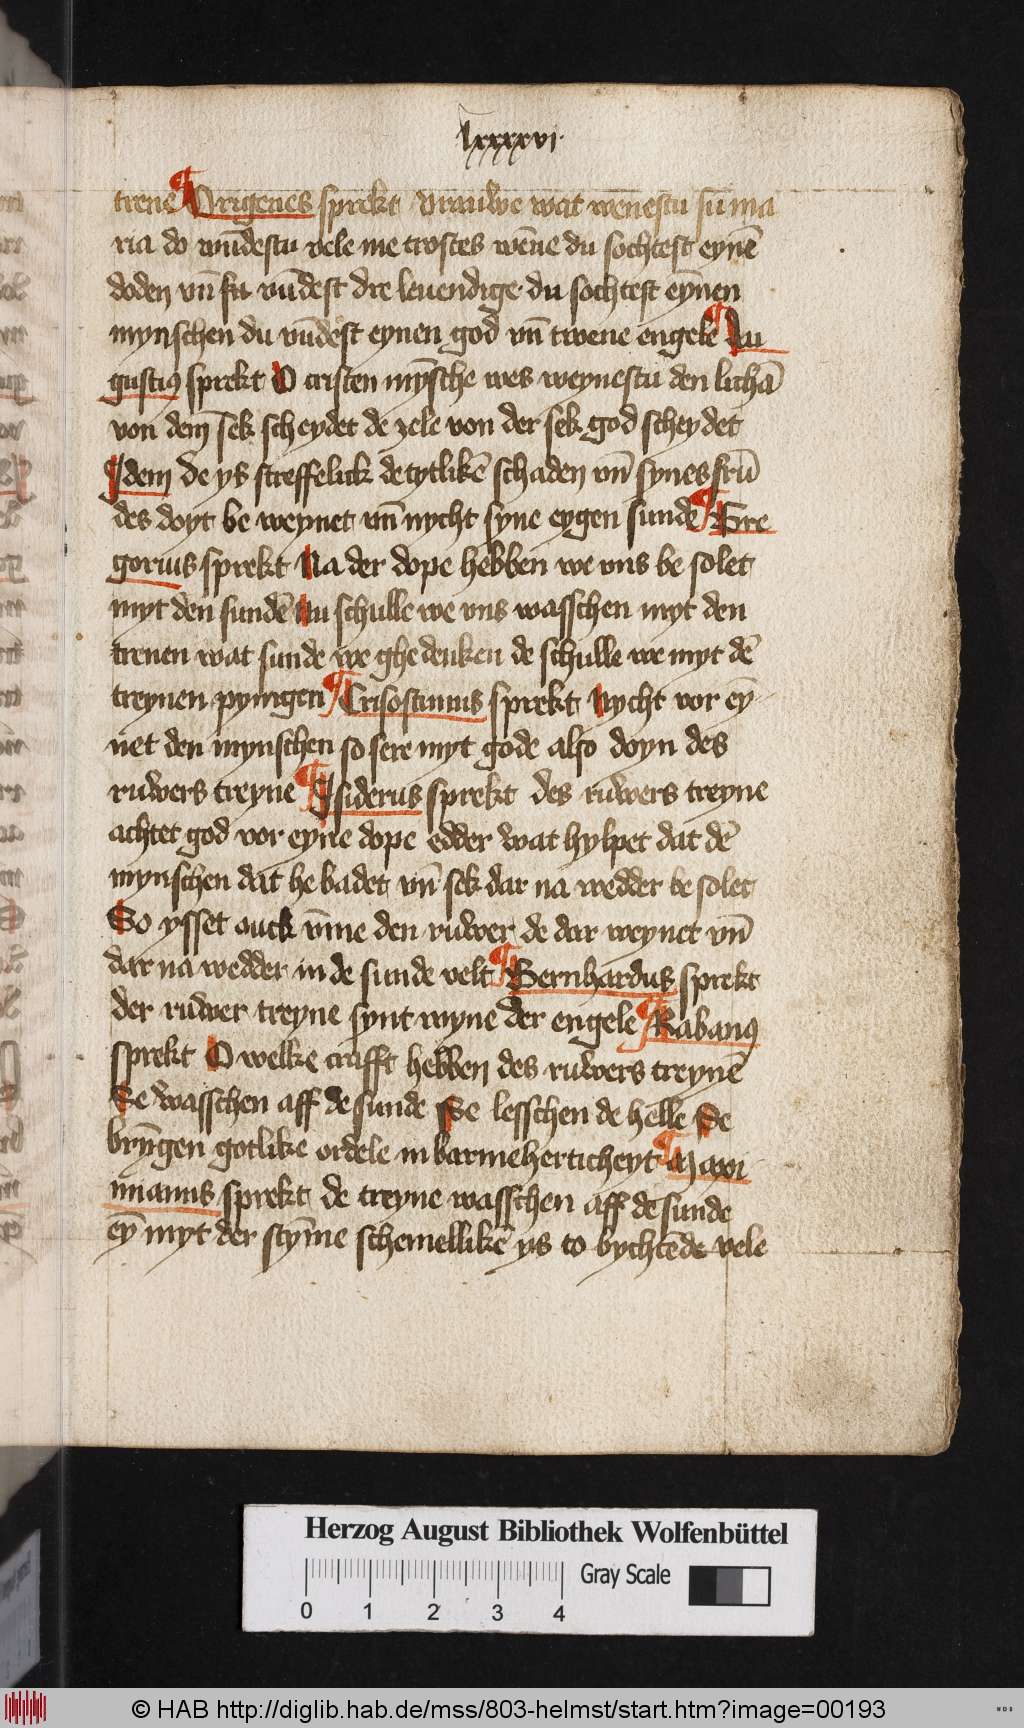 lxxxxvi
trene ¶ Origenes sprekt vrauwe wat wenestu su ma
ria do vūdestu vele me trostes wēne du sochtest eynē
doden vn̄ su vūdest dre leuendige du sochtest eynen
mynschen du vūdest eynen god vn̄ twene engele ¶ Au
gustiꝰ sprekt O cristen mȳsche wes weynestu den lichā
von dem sek scheydet de zele von der sek god scheydet
Idem De ys streffelick de tytlikē schaden vn̄ synes frū
des doyt be weynet vn̄ nycht syne eygen sunde ¶ Gre
gorius sprekt Na der dope hebben we vns be solet
myt den sundē Nu schulle we vns wasschen myt den
trenen wat sunde we ghedenken de schulle we myt dē
treynen pynigen ¶ Crisostimus sprekt Nycht vor eȳ
net den mynschen so sere myt gode also doyn des
ruwers treyne ¶ Isiderus sprekt des ruwers treyne
achtet god vor eyne dope edder wat hylpet dat dē
mynschen dat he badet vn̄ sek dar na wedder be solet
So ysset ouck vm̄e den ruwer de dar weynet vn̄
dar na wedder in de sunde velt ¶ Bernhardus sprekt
der ruwer treyne synt wyne der engele ¶ Rabanꝰ
sprekt O welke crafft hebben des ruwers treynē
Se wasschen aff de sunde Se lesschen de helle Se
brȳgen gotlike ordele in barmeherticheyt ¶ Maxi
mianus sprekt de treyne wasschen aff de sunde
eȳ myt der stȳme schemellikē ys to bychtēde vele
Herzog August Bibliothek Wolfenbüttel
Gray Scale
0 1 2 3 4
© HAB http://diglib.hab.de/mss/803-helmst/start.htm?image=00193